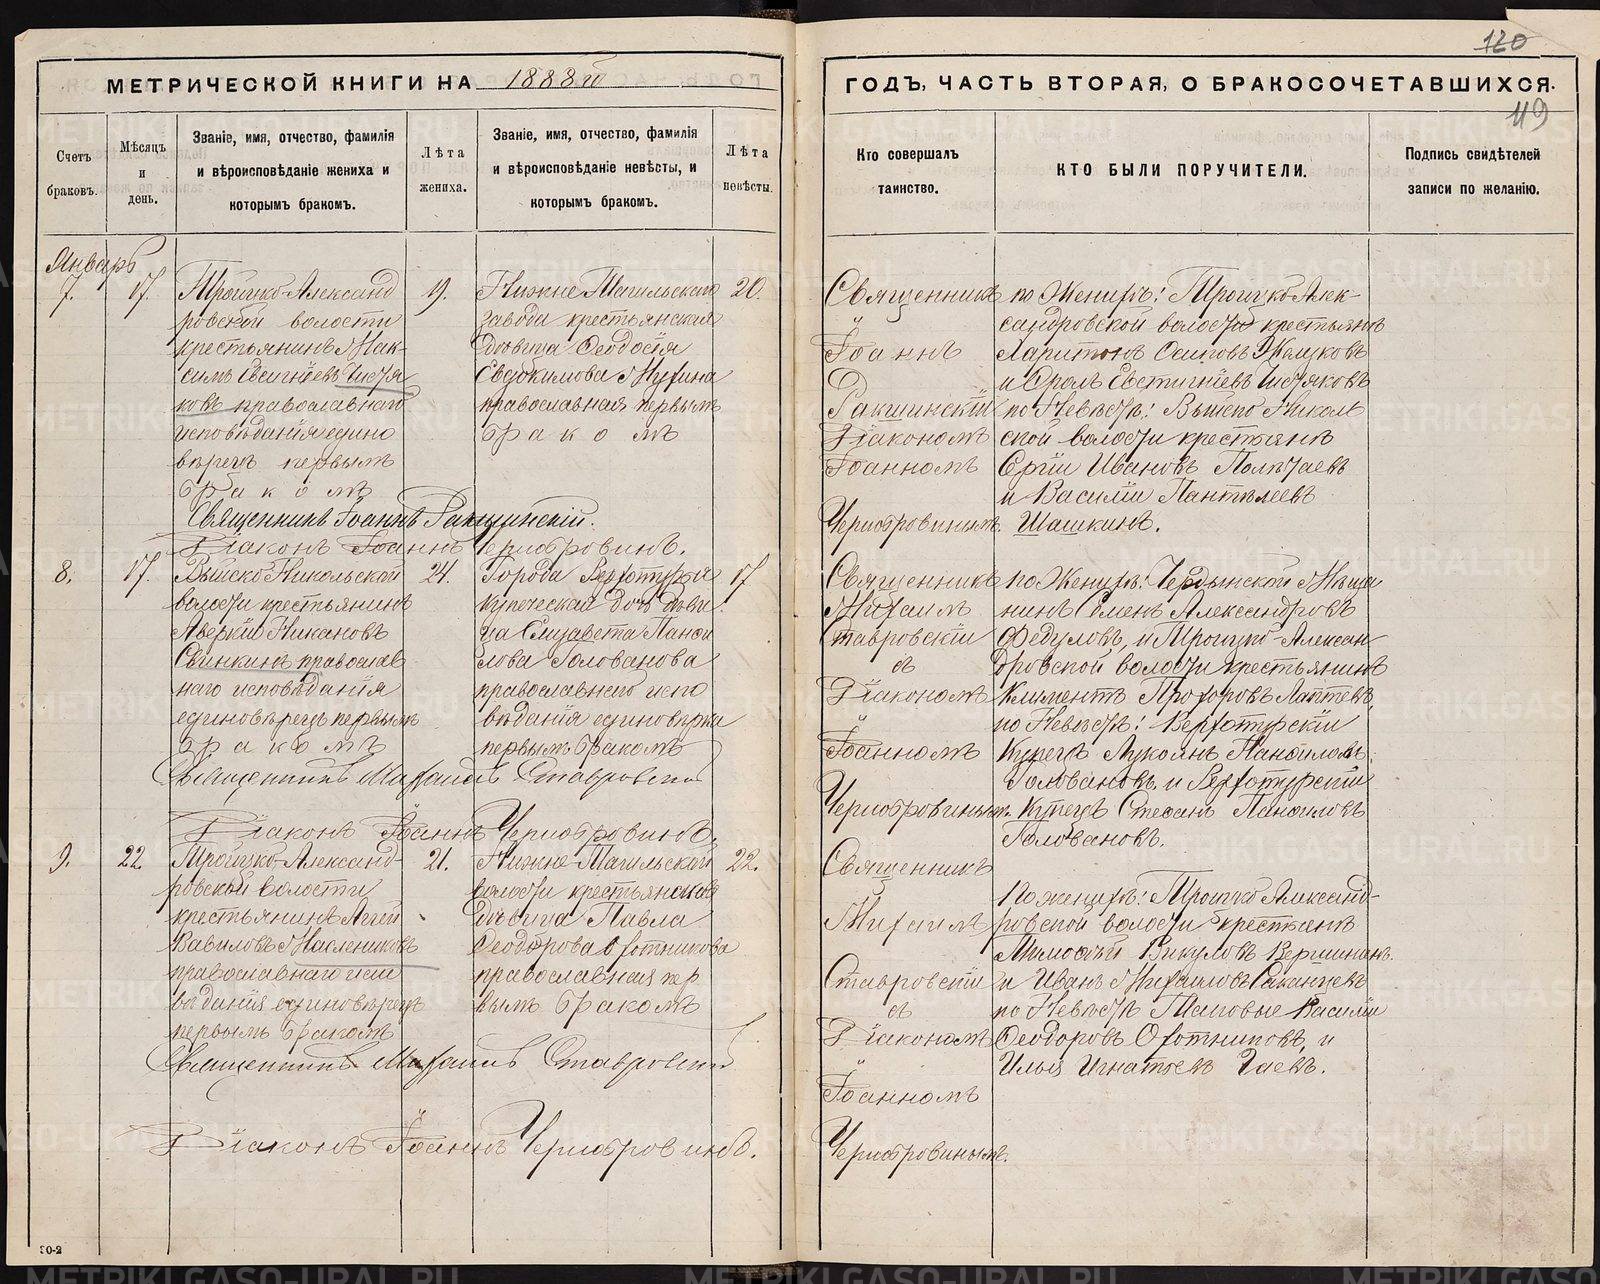 120
МЕТРИЧЕСКОЙ КНИГИ НА 1888й
ГОДЪ, ЧАСТЬ ВТОРАЯ, О БРАКОСОЧЕТАВШИХСЯ.
119
Счетъ браковъ.
Мѣсяцъ и день.
Званіе, имя, отчество, фамилія
и вѣроисповѣданіе жениха и
которымъ бракомъ.
Лѣта
жениха.
Званіе, имя, отчество, фамилія
и вѣроисповѣданіе невѣсты, и
которымъ бракомъ.
Лѣта
невѣсты.
Кто совершалъ
таинство.
КТО БЫЛИ ПОРУЧИТЕЛИ.
Подпись свидѣтелей
записи по желанію.
Январь
7.
17.
Троицко-Александ
ровской волости
крестьянинъ Мак-
симъ Евсигнѣевъ Чистя
ковъ православнаго
исповѣданія едино
вѣрецъ первымъ
бракомъ
19.
Нижне-Тагильскаго
завода крестьянская
дѣвица Феодосія
Евдокимова
православная первымъ
бракомъ
20.
Священникъ
Іоаннъ
Ракшинскій
Діакономъ
Іоанномъ
Чернобровинымъ.
по Женихѣ: Троицко Алек-
сандровской волости крестьянъ
Харитонъ Осиповъ
и Фролъ Евстигнѣевъ Чистяковъ
по Невѣстѣ: Выйско Николь
ской волости крестьянъ
Сергіи Ивановъ Полѣтаевъ
и Василіи Пантелеевъ
Шашкинъ.
Священникъ Іоаннъ Ракшинскій.
Діаконъ Іоаннъ Чернобровинъ.
8.
17.
Выйско Никольской
волости крестьянинъ
Аверкіи Никановъ
Свинкинъ православ
наго исповѣданія
единовѣрецъ первымъ
бракомъ
24.
Города Верхотурья
купеческая дочь дѣви
ца Елизавета Панфи
лова Голованова
православнаго испо
вѣданія единовѣрка
первымъ бракомъ
17
Священникъ
Михаилъ
Ставровскіи
съ
Діакономъ
Іоанномъ
Чернобровинымъ.
по Женихѣ: Чердынской Мѣща
нинъ Семенъ Александровъ
Федуловъ, и Троицко-Алексан
дровской волости крестьянинъ
Климентъ Прохоровъ Лаптевъ,
по Невѣстѣ: Верхотурскіи
Купецъ Лукоянъ Панфиловъ
Головановъ, и Верхотурскіи
Купецъ Стефанъ Панфиловъ
Головановъ.
Священникъ Михаилъ Ставровскій
Діаконъ Іоаннъ Чернобровинъ.
9.
22.
Троицко-Александ-
ровской волости
крестьянинъ
Вавиловъ Маслениковъ
православнаго испо
вѣданія единовѣрецъ
первымъ бракомъ
21.
Нижне-Тагильской
волости крестьянская
дѣвица Павла
Феодорова Охотникова
православная пер
вымъ бракомъ
22.
Священникъ
Михаилъ
Ставровскіи
съ
Діакономъ
Іоанномъ
Чернобровинымъ.
По женихѣ: Троицко Александ-
ровской волости крестьянъ
Тимофѣй Викуловъ Вершининъ
и Иванъ Михаиловъ
по Невѣстѣ Василіи
Феодоровъ Охотниковъ, и
Илья Игнатьевъ Гаевъ.
Священникъ Михаилъ Ставровскій
Діаконъ Іоаннъ Чернобровинъ.
30-2
METRIKI.GASO-URAL.RU